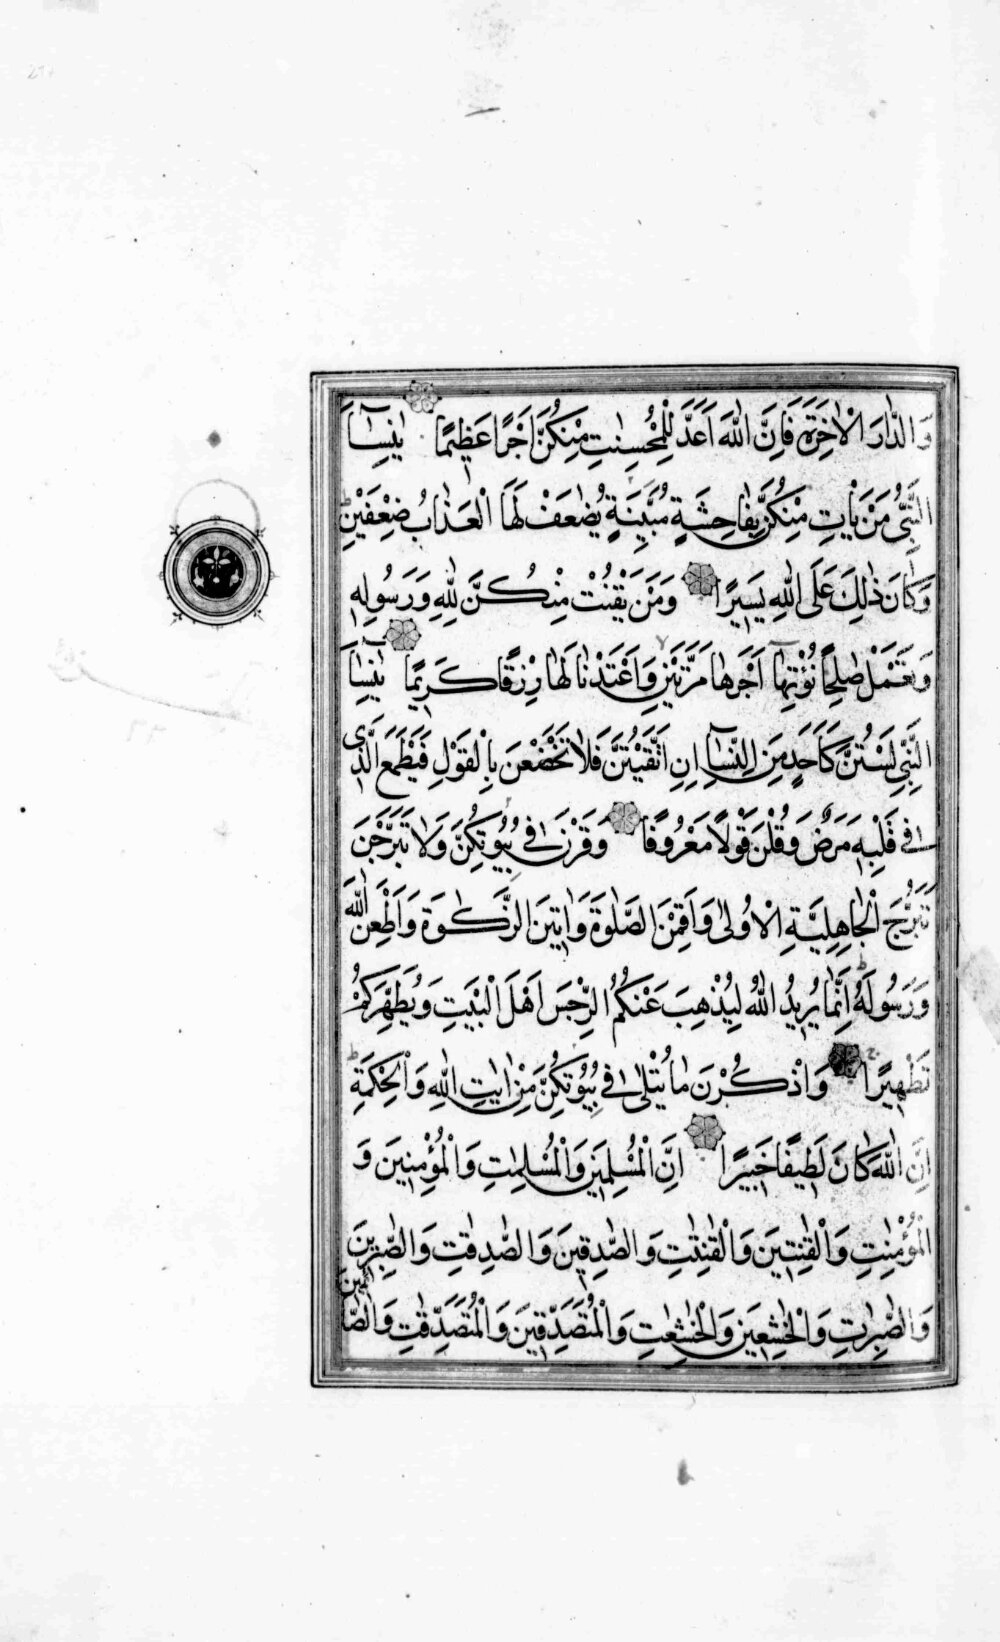 وَالدَّارَ الْاٰخِرَةَ فَاِنَّ اللّٰهَ اَعَدَّ لِلْمُحْسِنٰتِ مِنْكُنَّ اَجْرًا عَظِيمًا يٰنِسَآءَ
النَّبِيِّ مَنْ يَأْتِ مِنْكُنَّ بِفَاحِشَةٍ مُبَيِّنَةٍ يُضٰعَفْ لَهَا الْعَذَابُ ضِعْفَيْنِ
وَكَانَ ذٰلِكَ عَلَى اللّٰهِ يَسِيرًا وَمَنْ يَقْنُتْ مِنْكُنَّ لِلّٰهِ وَرَسُولِهِ
وَتَعْمَلْ صَالِحًا نُؤْتِهَا اَجْرَهَا مَرَّتَيْنِ وَاَعْتَدْنَا لَهَا رِزْقًا كَرِيمًا يٰنِسَآءَ
النَّبِيِّ لَسْتُنَّ كَاَحَدٍ مِنَ النِّسَآءِ اِنِ اتَّقَيْتُنَّ فَلَا تَخْضَعْنَ بِالْقَوْلِ فَيَطْمَعَ الَّذِى
فِى قَلْبِهِ مَرَضٌ وَقُلْنَ قَوْلًا مَعْرُوفًا وَقَرْنَ فِى بُيُوتِكُنَّ وَلَا تَبَرَّجْنَ
تَبَرُّجَ الْجَاهِلِيَّةِ الْاُولٰى وَاَقِمْنَ الصَّلٰوةَ وَاٰتِينَ الزَّكٰوةَ وَاَطِعْنَ اللّٰهَ
وَرَسُولَهُ اِنَّمَا يُرِيدُ اللّٰهُ لِيُذْهِبَ عَنْكُمُ الرِّجْسَ اَهْلَ الْبَيْتِ وَيُطَهِّرَكُمْ
تَطْهِيرًا وَاذْكُرْنَ مَا يُتْلٰى فِى بُيُوتِكُنَّ مِنْ اٰيَاتِ اللّٰهِ وَالْحِكْمَةِ
اِنَّ اللّٰهَ كَانَ لَطِيفًا خَبِيرًا اِنَّ الْمُسْلِمِينَ وَالْمُسْلِمٰتِ وَالْمُؤْمِنِينَ وَ
الْمُؤْمِنٰتِ وَالْقٰنِتِينَ وَالْقٰنِتٰتِ وَالصّٰدِقِينَ وَالصّٰدِقٰتِ وَالصّٰبِرِينَ
وَالصّٰبِرٰتِ وَالْخٰشِعِينَ وَالْخٰشِعٰتِ وَالْمُتَصَدِّقِينَ وَالْمُتَصَدِّقٰتِ وَالصَّائِمِينَ